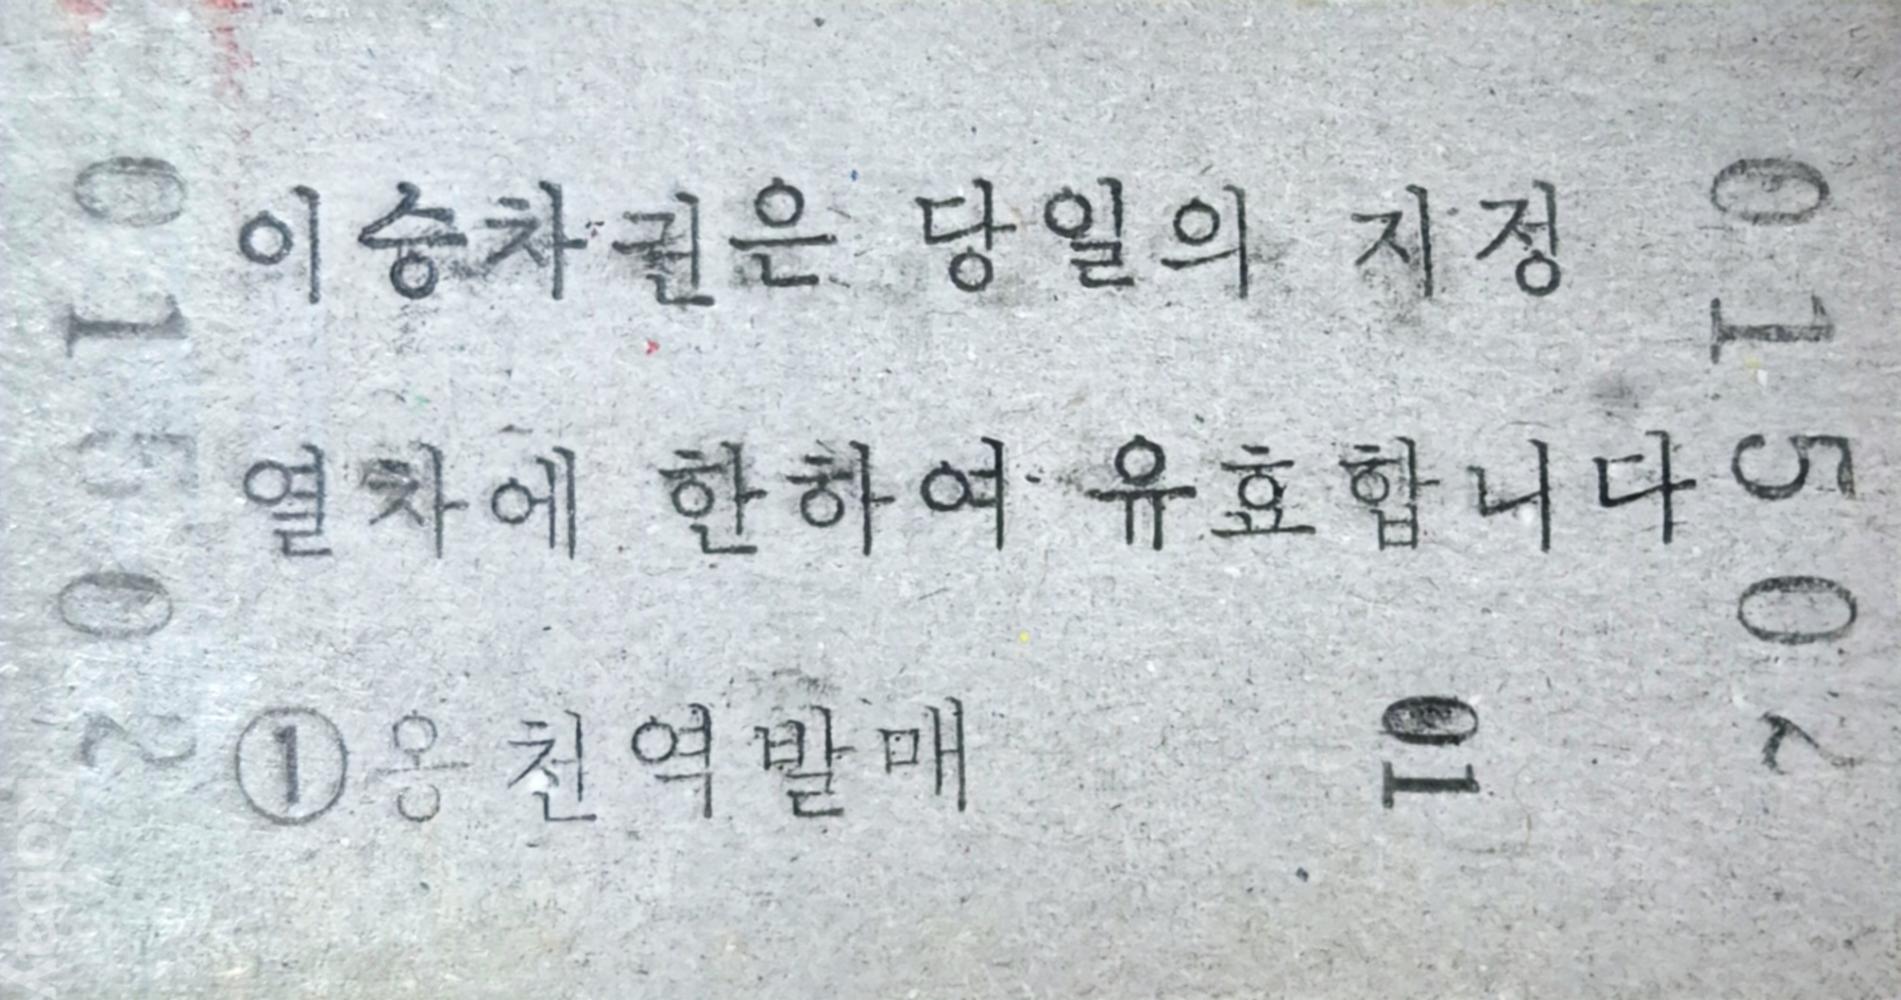 이 승차권은 당일의 지정
열차에 한하여 유효합니다
①웅천역발매
10
01502
kobay